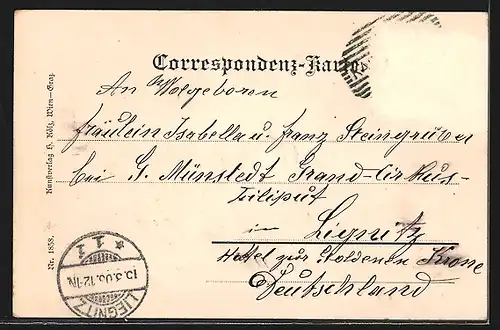 Correspondenz-Karte
An Wolgeboren
Fräulein Isabella u. Franz Steingruber
bei G. Münstedt Grand-Cirkus-
Liliput
in Liegnitz
Hotel zur Goldenen Krone
Deutschland
Kunstverlag H. Kölz, Wien-Graz.
Nr. 1858.
LIEGNITZ
* 1 1